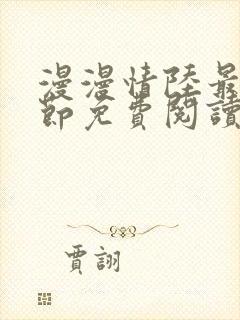 漫漫情陸最
節免費閱讀
賈詡